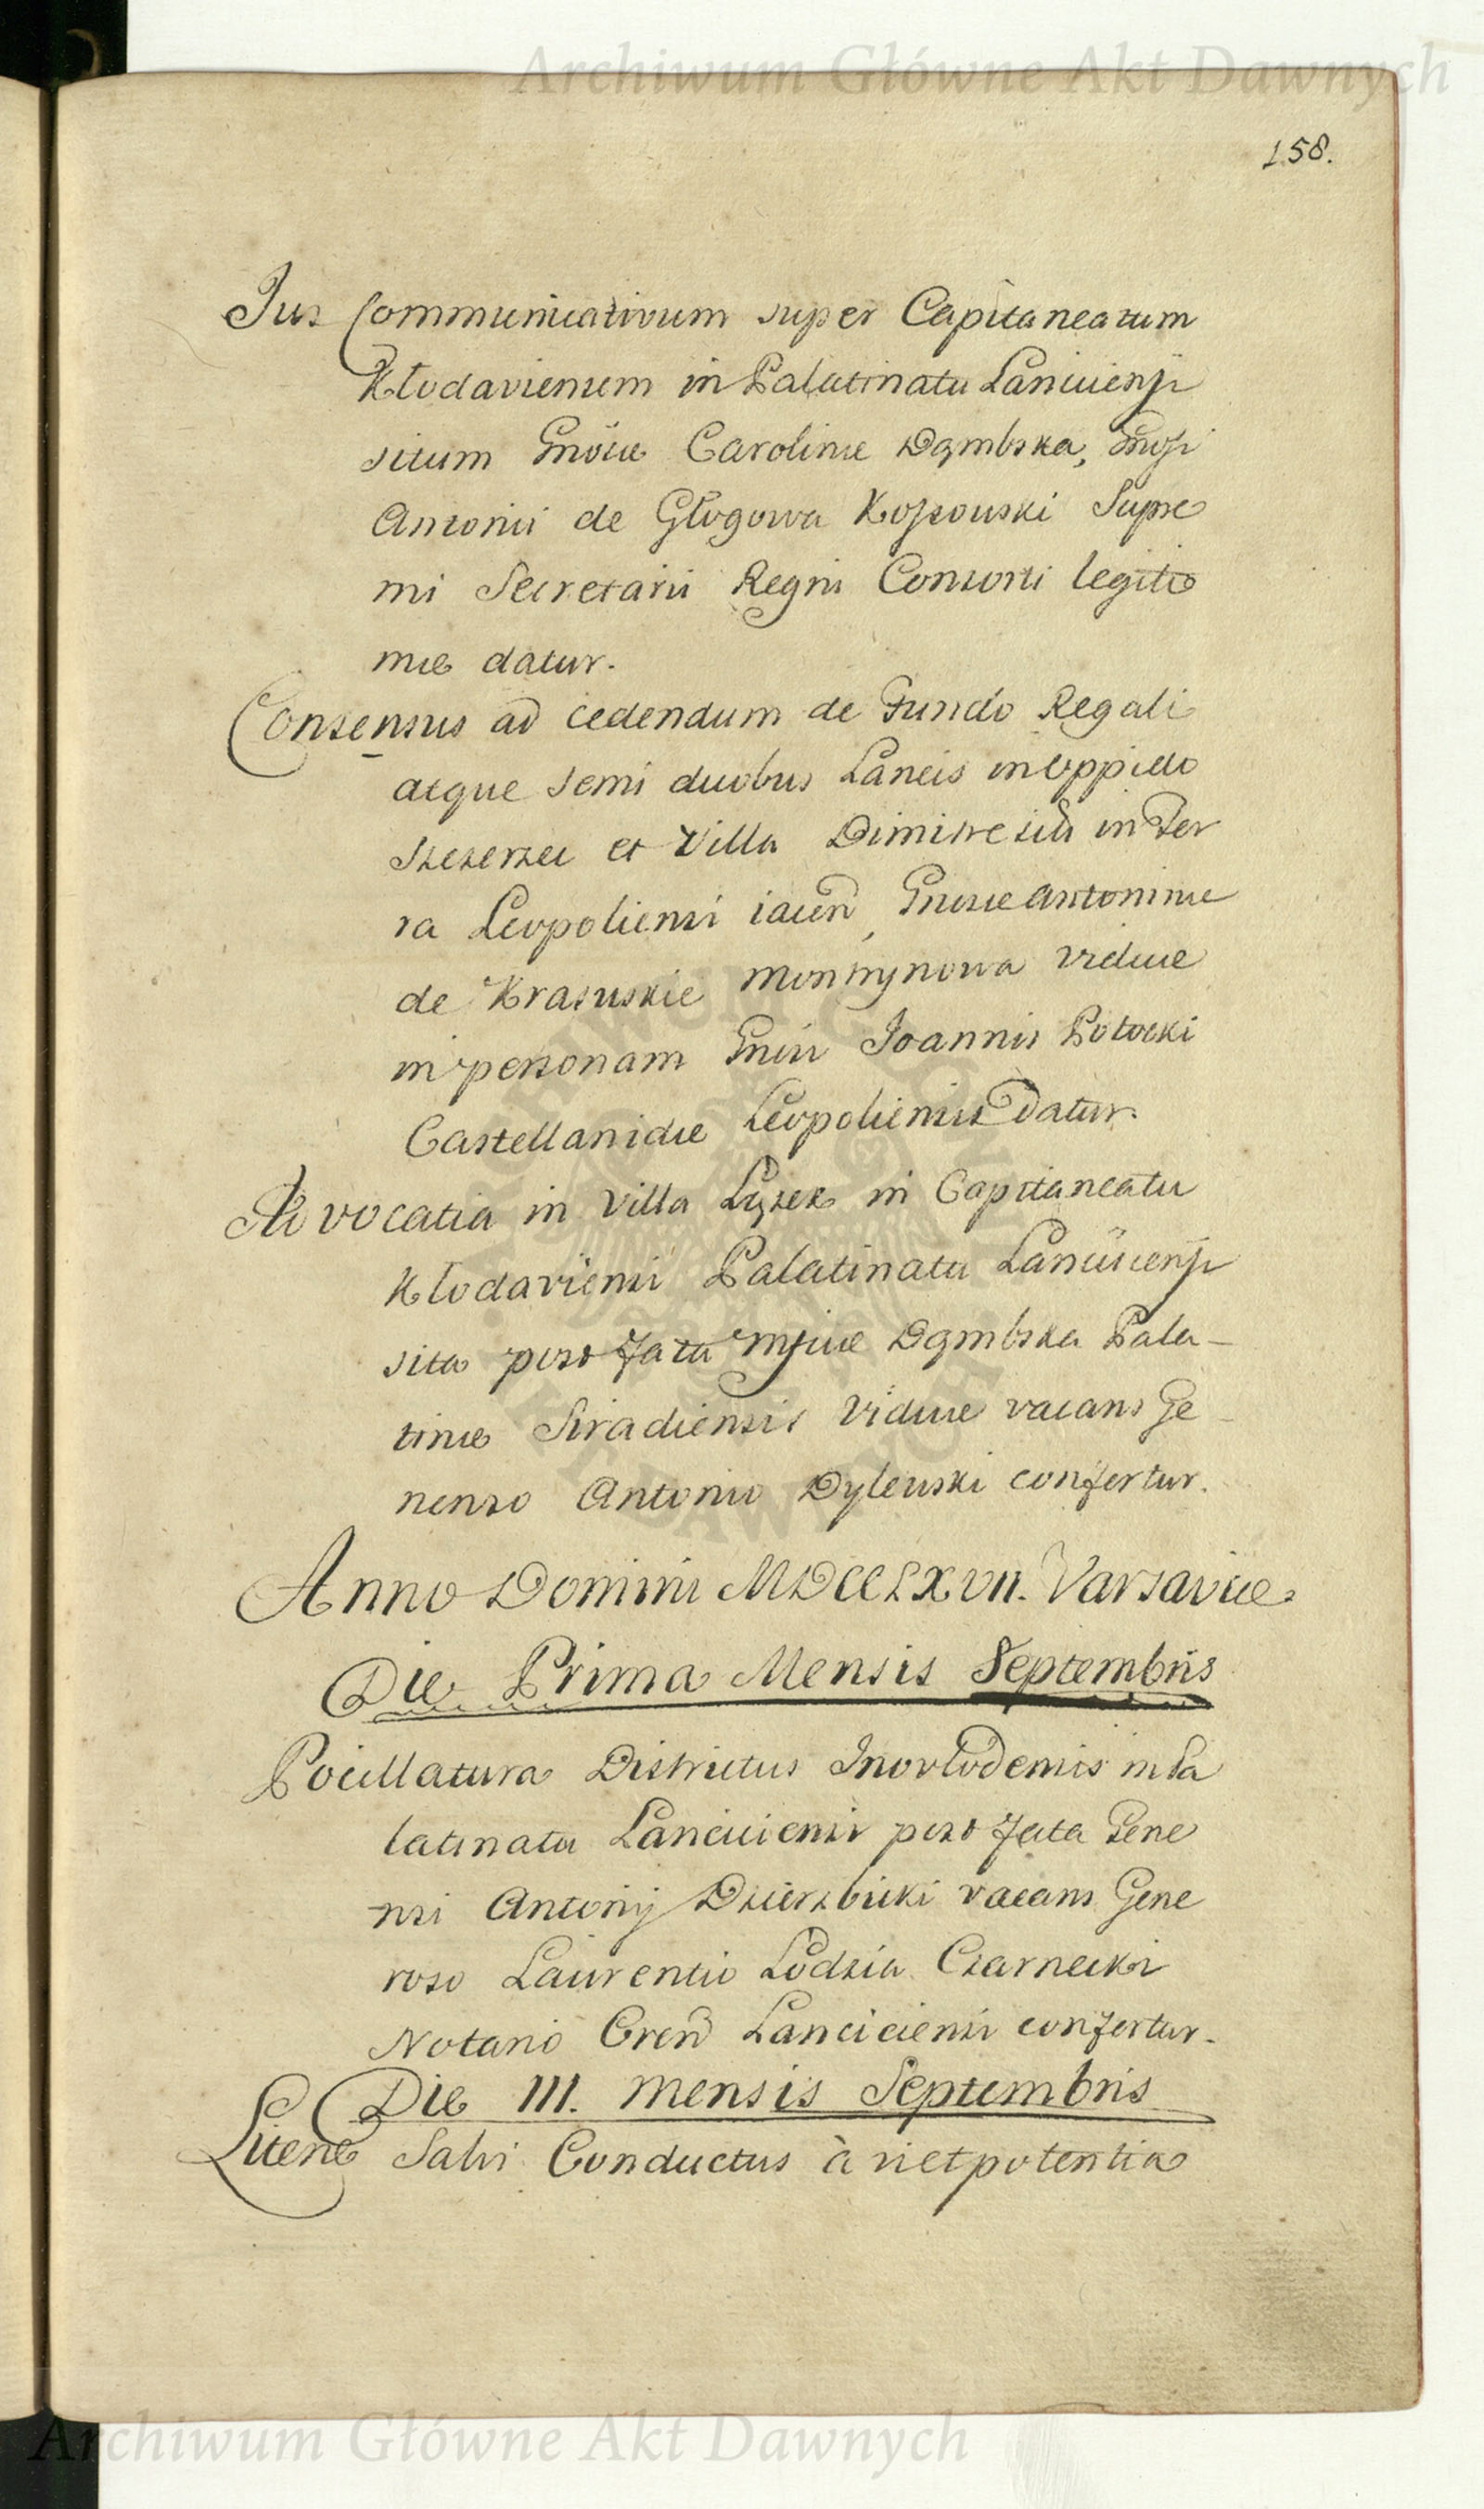 Archiwum Główne Akt Dawnych
158.
Jus Communicativum super Capitaneatum
Kłodaviensem in Palatinatu Lanciciensi
situm Gnösæ Carolinæ Dąmbska, Gnosi
Antonii de Głogowa Kossowski Supre
mi Secretarii Regni Consorti legiti
mæ datur.
Consensus ad cedendum de Fundo Regali
atque semi duobus Laneis in Oppido
Szczerzec et Villa Dimitre sitis in Ter
ra Leopoliensi iacen̄, Gnosæ Antoninæ
de Krasuskie Montrynowa viduæ
in personam Gnisi Joannis Potocki
Castellanidæ Leopoliensis datur.
Advocatia in Villa Łążek in Capitaneatu
Kłodaviensi Palatinatu Lanciciensi
sita post fata Mfiæ Dąmbska Pala-
tinæ Siradiensis Viduæ vacans Ge
neroso Antonio Dylewski confertur.
Anno Domini MDCCLXVII. Varsaviæ
Die Prima Mensis Septembris
Pocillatura Districtus Inovłodensis in Pa
latinatu Lanciciensi post fata Gene
rosi Antonij Dzierzbicki vacans Gene
roso Laurentio Łodzia Czarnecki
Notario Cren̄ Lanciciensi confertur.
Die III. Mensis Septembris
Literæ Salvi Conductus à vi et potentia
Archiwum Główne Akt Dawnych